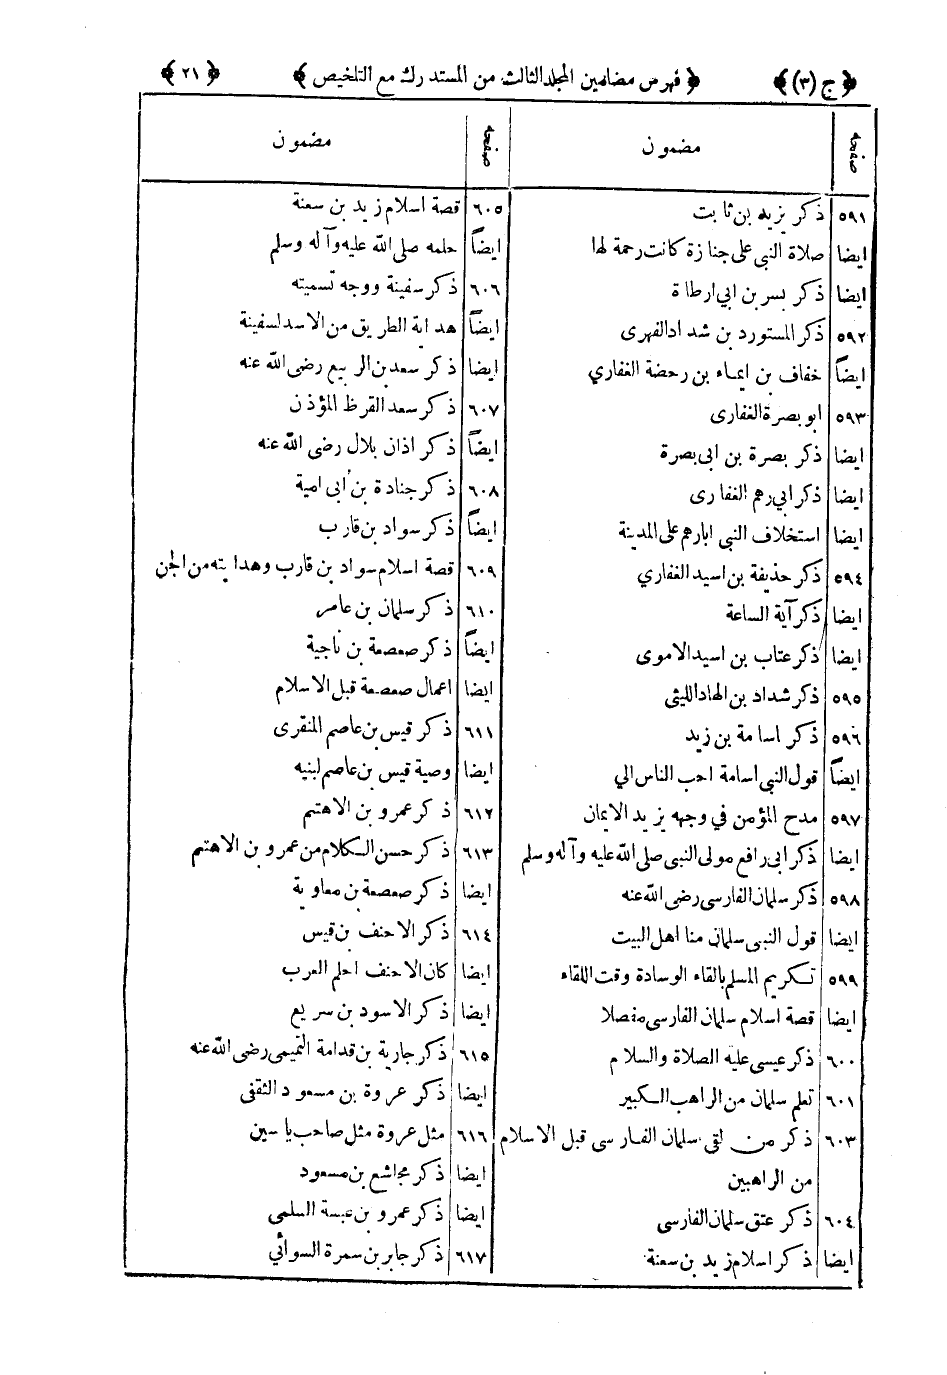 ﴿ ج (٣) ﴾ ﴿ فهرس مضامين المجلد الثالث من المستدرك مع التلخيص ﴾ ﴿ ٢١ ﴾
صفحه مضمون
٥٩١ ذكر يزيد بن ثابت
ايضا صلاة النبى على جنازة كانت رحمة لها
ايضا ذكر بسر بن ابى ارطاة
٥٩٢ ذكر المستورد بن شداد الفهرى
ايضاً خفاف بن ايماء بن رحضة الغفاري
٥٩٣ ابو بصرة الغفارى
ايضا ذكر بصرة بن ابى بصرة
ايضا ذكر ابي رهم الغفارى
ايضا استخلاف النبى ابا رهم على المدينة
٥٩٤ ذكر حذيفة بن اسيد الغفاري
ايضا ذكر آية الساعة
ايضا ذكر عتاب بن اسيد الاموى
٥٩٥ ذكر شداد بن الهاد الليثى
٥٩٦ ذكر اسامة بن زيد
ايضاً قول النبى اسامة احب الناس الي
٥٩٧ مدح المؤمن في وجهه يزيد الايمان
ايضا ذكر ابى رافع مولى النبى صلى الله عليه وآله وسلم
٥٩٨ ذكر سلمان الفارسى رضى الله عنه
ايضا قول النبى سلمان منا اهل البيت
٥٩٩ تكريم المسلم بالقاء الوسادة وقت اللقاء
ايضا قصة اسلام سلمان الفارسى مفصلا
٦٠٠ ذكر عيسى عليه الصلاة والسلام
٦٠١ تعلم سلمان من الراهب الكبير
٦٠٣ ذكر من لقى سلمان الفارسى قبل الاسلام
من الراهبين
٦٠٤ ذكر عتق سلمان الفارسى
ايضا ذكر اسلام زيد بن سعنة
صفحه مضمون
٦٠٥ قصة اسلام زيد بن سعنة
ايضاً حلمه صلى الله عليه وآله وسلم
٦٠٦ ذكر سفينة ووجه تسميته
ايضاً هداية الطريق من الاسد لسفينة
ايضا ذكر سعد بن الربيع رضى الله عنه
٦٠٧ ذكر سعد القرظ المؤذن
ايضاً ذكر اذان بلال رضى الله عنه
٦٠٨ ذكر جنادة بن أبى امية
ايضاً ذكر سواد بن قارب
٦٠٩ قصة اسلام سواد بن قارب وهدايته من الجن
٦١٠ ذكر سلمان بن عامر
ايضاً ذكر صعصعة بن ناجية
ايضا اعمال صعصعة قبل الاسلام
٦١١ ذكر قيس بن عاصم المنقرى
ايضا وصية قيس بن عاصم لبنيه
٦١٢ ذكر عمرو بن الاهتم
٦١٣ ذكر حسن الكلام من عمرو بن الاهتم
ايضا ذكر صعصعة بن معاوية
٦١٤ ذكر الاحنف بن قيس
ايضا كان الاحنف احلم العرب
ايضا ذكر الاسود بن سريع
٦١٥ ذكر جارية بن قدامة التميمى رضى الله عنه
ايضا ذكر عروة بن مسعود الثقفى
٦١٦ مثل عروة مثل صاحب ياسين
ايضا ذكر مجاشع بن مسعود
ايضا ذكر عمرو بن عبسة السلمى
٦١٧ ذكر جابر بن سمرة السوائي